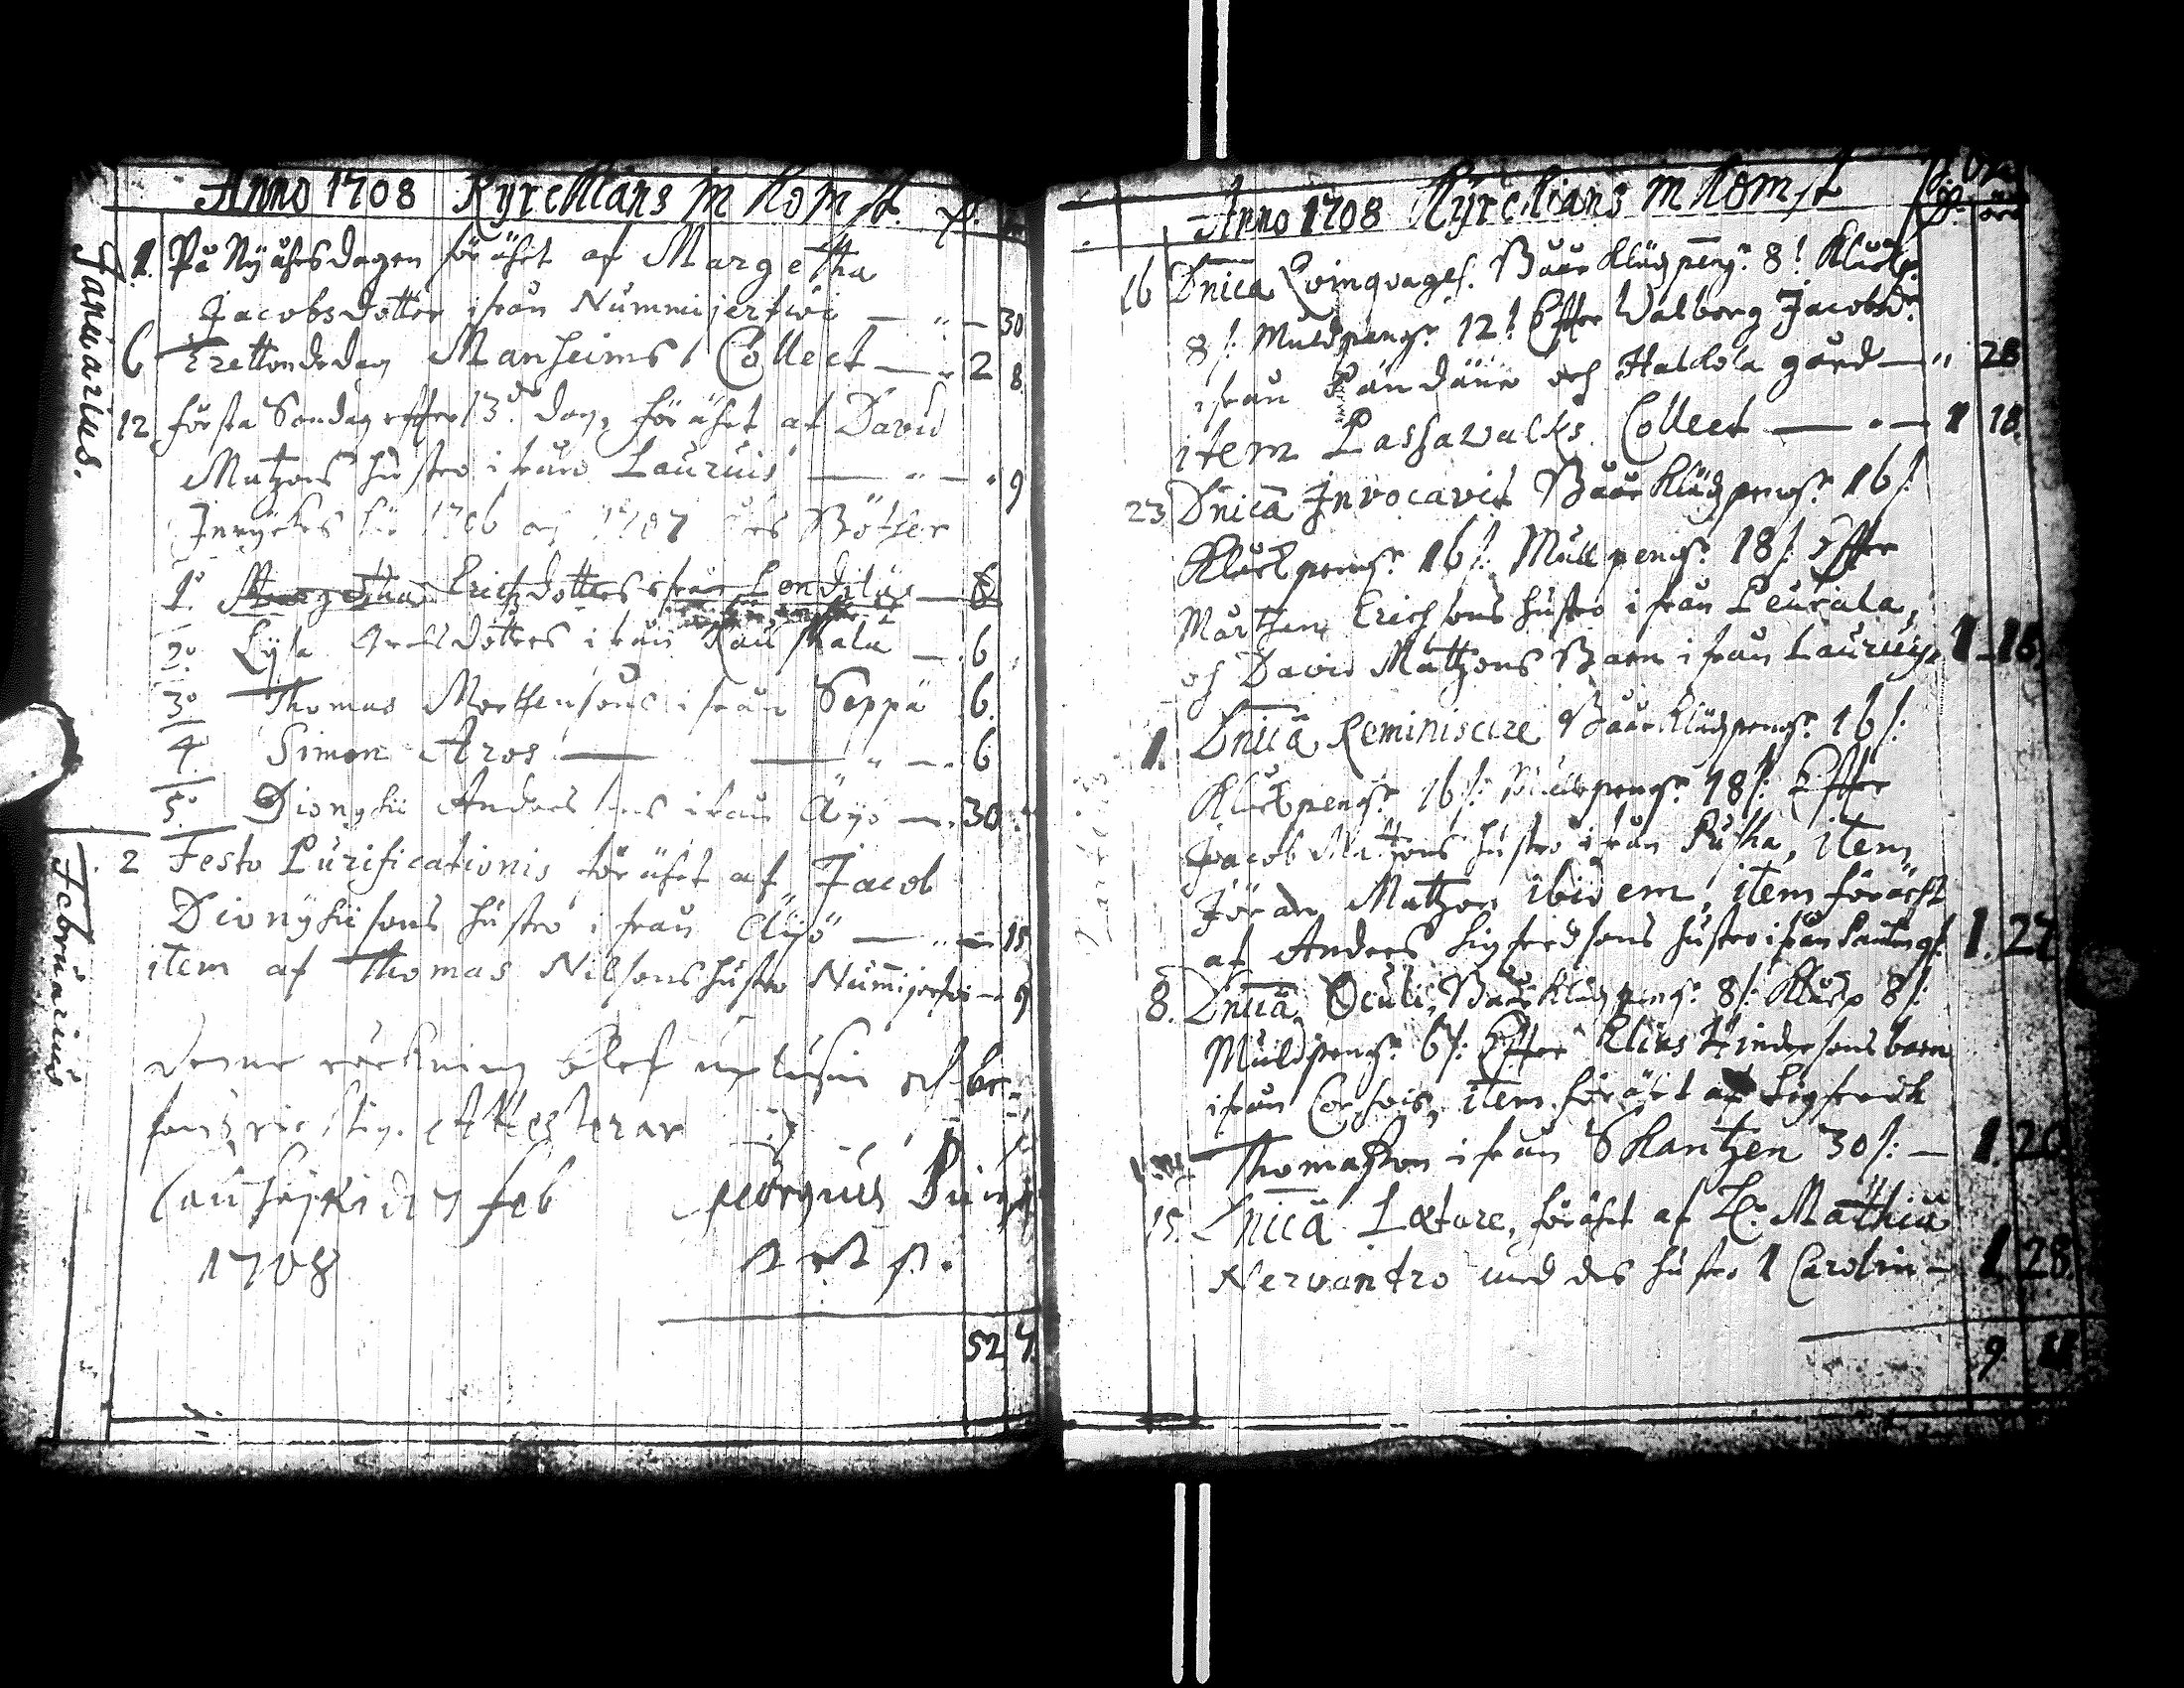 Anno 1708 Kyrckians Inkomst.
Januarius.
1. På Nyåhrsdagen förährt af Margetha
Jacobsdotter ifrån Nummijerfwi — " — 30
6 Trettondedag Manheims Collect — " 2 8
12 första Söndag effter 13de dag, förährt af David
Matzons hustro ifrån Lauruis — " — " 9
1706 1707 Böther
1o Margetha Erichzdotters ifrån Londilas — 6
2o Lysa dotters ifrån — 6
3o Thomas Morthensons ifrån Seppä 6.
4. Simon Aros — — " — 6
5o Dionysii Anders sons ifrån Äijö — 30
Februarius
2 Festo Purificationis förährt af Jacob
Dionysii sons hustro ifrån Äijö — " — 15
item af Thomas Nilsons hustro Nummijerfwi — 9
Denne räckning blef upläsin och be-
fans richtig. Attesterar
d 7 feb Georgius
1708
52 7.
Anno 1708 Kyrckians Inkomst
16 Dnica Qvinqvages. Baarklädz peng:r 8! Klock:
8 /: Muldpeng:r 12! Effter Walborg Jacobsd:r
ifrån och Haldola gård — " 28
item Passawalks Collect — " — 1 18.
23 Dnica Invocavit Baarklädz peng:r 16 /:
Klockpeng:r 16 /: Mullpeng:r 18 /: Effter
Mårthen Erichsons hustro ifrån Peurala,
och David Mattzons Barn ifrån Lauruis 1 15.
1. Dnica Reminiscere Baarklädz peng:r 16 /:
Klockpeng:r 16 /: Mullpeng:r 18 /: Effter
Jacob Mattzons hustro ifrån Puska, item
Jöran Matzon ibidem, item förährt
af Anders Sigfredsons hustro ifrån 1. 27
8. Dnica Oculi, Baarklädz peng:r 8 /: Klockp 8 /:
Muldpeng:r 6 /: Effter Elias Hindersons barn
ifrån Corfois, item förährt af Sigfredh
Thomasson ifrån Skantzen 30 /: — 1 20
15. Dnica Lætare, förährt af H:r Matthia
Nervandro med des hustro 1 Carolin — 1 28.
9 4